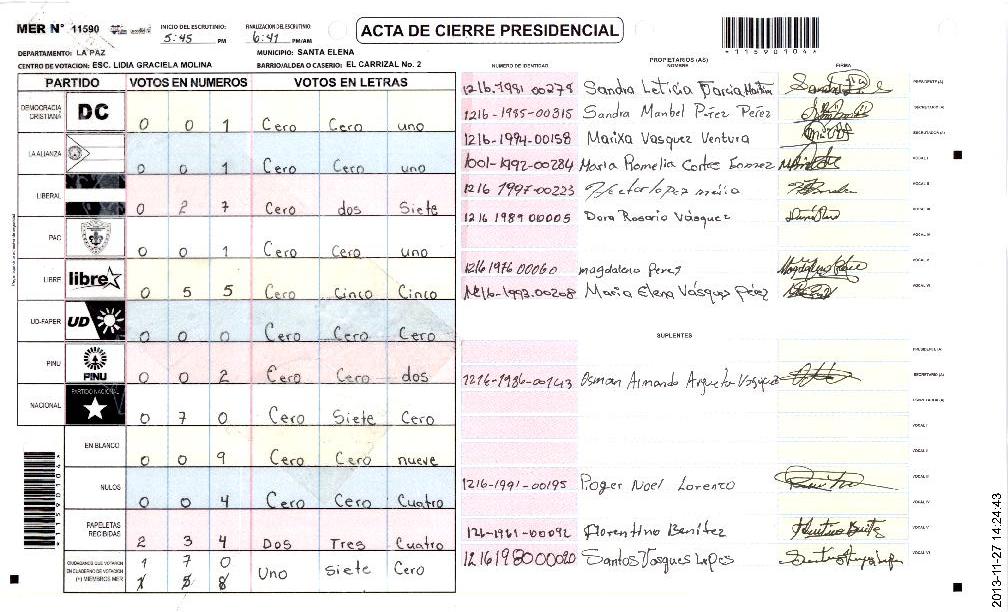 MER N° 11590
INICIO DEL ESCRUTINIO: 5:45 PM
FINALIZACION DEL ESCRUTINIO: 6:41 PM/AM
ACTA DE CIERRE PRESIDENCIAL
*11590104*
DEPARTAMENTO: LA PAZ
MUNICIPIO: SANTA ELENA
CENTRO DE VOTACION: ESC. LIDIA GRACIELA MOLINA
BARRIO/ALDEA O CASERIO: EL CARRIZAL No. 2
PARTIDO VOTOS EN NUMEROS VOTOS EN LETRAS
DEMOCRACIA CRISTIANA DC 0 0 1 Cero Cero uno
LA ALIANZA 0 0 1 Cero Cero uno
LIBERAL 0 2 7 Cero dos Siete
PAC 0 0 1 Cero Cero uno
LIBRE libre 0 5 5 Cero Cinco Cinco
UD-FAPER UD 0 0 0 Cero Cero Cero
PINU PINU 0 0 2 Cero Cero dos
NACIONAL PARTIDO NACIONAL 0 7 0 Cero Siete Cero
EN BLANCO 0 0 9 Cero Cero nueve
NULOS 0 0 4 Cero Cero Cuatro
PAPELETAS RECIBIDAS 2 3 4 Dos Tres Cuatro
CIUDADANOS QUE VOTARON EN CUADERNO DE VOTACION (+) MIEMBROS MER 1 7 0 Uno siete Cero
PROPIETARIOS (AS)
NUMERO DE IDENTIDAD NOMBRE FIRMA
1216-1981 00279 Sandra Leticia Garcia PRESIDENTE (A)
1216-1985-00315 Sandra Maribel Pérez Pérez SECRETARIO (A)
1216-1994-00158 Marixa Vasquez Ventura ESCRUTADOR (A)
1001-1992-00284 Maria Romelia Cortez Gomez VOCAL I
1216 1997-00223 Hector lopez VOCAL II
1216 1989 00005 Dora Rosario Vásquez VOCAL III
VOCAL IV
1216 1976 00060 magdaleno Perez VOCAL V
1216-1993-00208 Maria Elena Vásquez Pérez VOCAL VI
SUPLENTES
PRESIDENTE (A)
1216-1986-00143 Osman Armando Argueta Vasquez SECRETARIO (A)
ESCRUTADOR (A)
VOCAL I
VOCAL II
1216-1991-00195 Roger Noel Lorenzo VOCAL III
VOCAL IV
126-1961-00092 Florentino Benítez VOCAL V
1216198000020 Santos Vasques Lopes VOCAL VI
*11590104*
2013-11-27 14:24:43